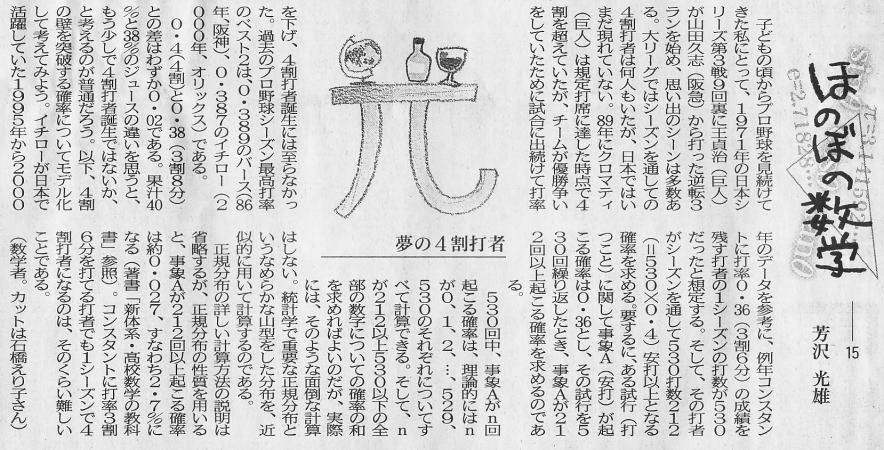 ほのぼの数学
15
芳沢 光雄
夢の４割打者
子どもの頃からプロ野球を見続けて
きた私にとって、１９７１年の日本シ
リーズ第３戦９回裏に王貞治（巨人）
が山田久志（阪急）から打った逆転３
ランを始め、思い出のシーンは多数あ
る。大リーグではシーズンを通しての
４割打者は何人もいたが、日本ではい
まだ現れていない。８９年にクロマティ
（巨人）は規定打席に達した時点で４
割を超えていたが、チームが優勝争い
をしていたために試合に出続けて打率
を下げ、４割打者誕生には至らなかっ
た。過去のプロ野球シーズン最高打率
のベスト２は、０・３８９のバース（８６
年、阪神）、０・３８７のイチロー（２
０００年、オリックス）である。
０・４（４割）と０・３８（３割８分）
との差はわずか０・０２である。果汁４０
％と３８％のジュースの違いを思うと、
もう少しで４割打者誕生ではないか、
と考えるのが普通だろう。以下、４割
の壁を突破する確率についてモデル化
して考えてみよう。イチローが日本で
活躍していた１９９５年から２０００
年のデータを参考に、例年コンスタン
トに打率０・３６（３割６分）の成績を
残す打者の１シーズンの打数が５３０
だったと想定する。そして、その打者
がシーズンを通して５３０打数２１２
（＝５３０×０・４）安打以上となる
確率を求める。要するに、ある試行（打
つこと）に関して事象Ａ（安打）が起
こる確率は０・３６とし、その試行を５
３０回繰り返したとき、事象Ａが２１
２回以上起こる確率を求めるのであ
る。
５３０回中、事象Ａがｎ回
起こる確率は、理論的にはｎ
が０、１、２、…、５２９、
５３０のそれぞれについてす
べて計算できる。そして、ｎ
が２１２以上５３０以下の全
部の数字についての確率の和
を求めればよいのだが、実際
には、そのような面倒な計算
はしない。統計学で重要な正規分布と
いうなめらかな山型をした分布を、近
似的に用いて計算するのである。
正規分布の詳しい計算方法の説明は
省略するが、正規分布の性質を用いる
と、事象Ａが２１２回以上起こる確率
は約０・０２７、すなわち２・７％に
なる（著書「新体系・高校数学の教科
書」参照）。コンスタントに打率３割
６分を打てる打者でも１シーズンで４
割打者になるのは、そのくらい難しい
ことである。
（数学者。カットは石橋えり子さん）